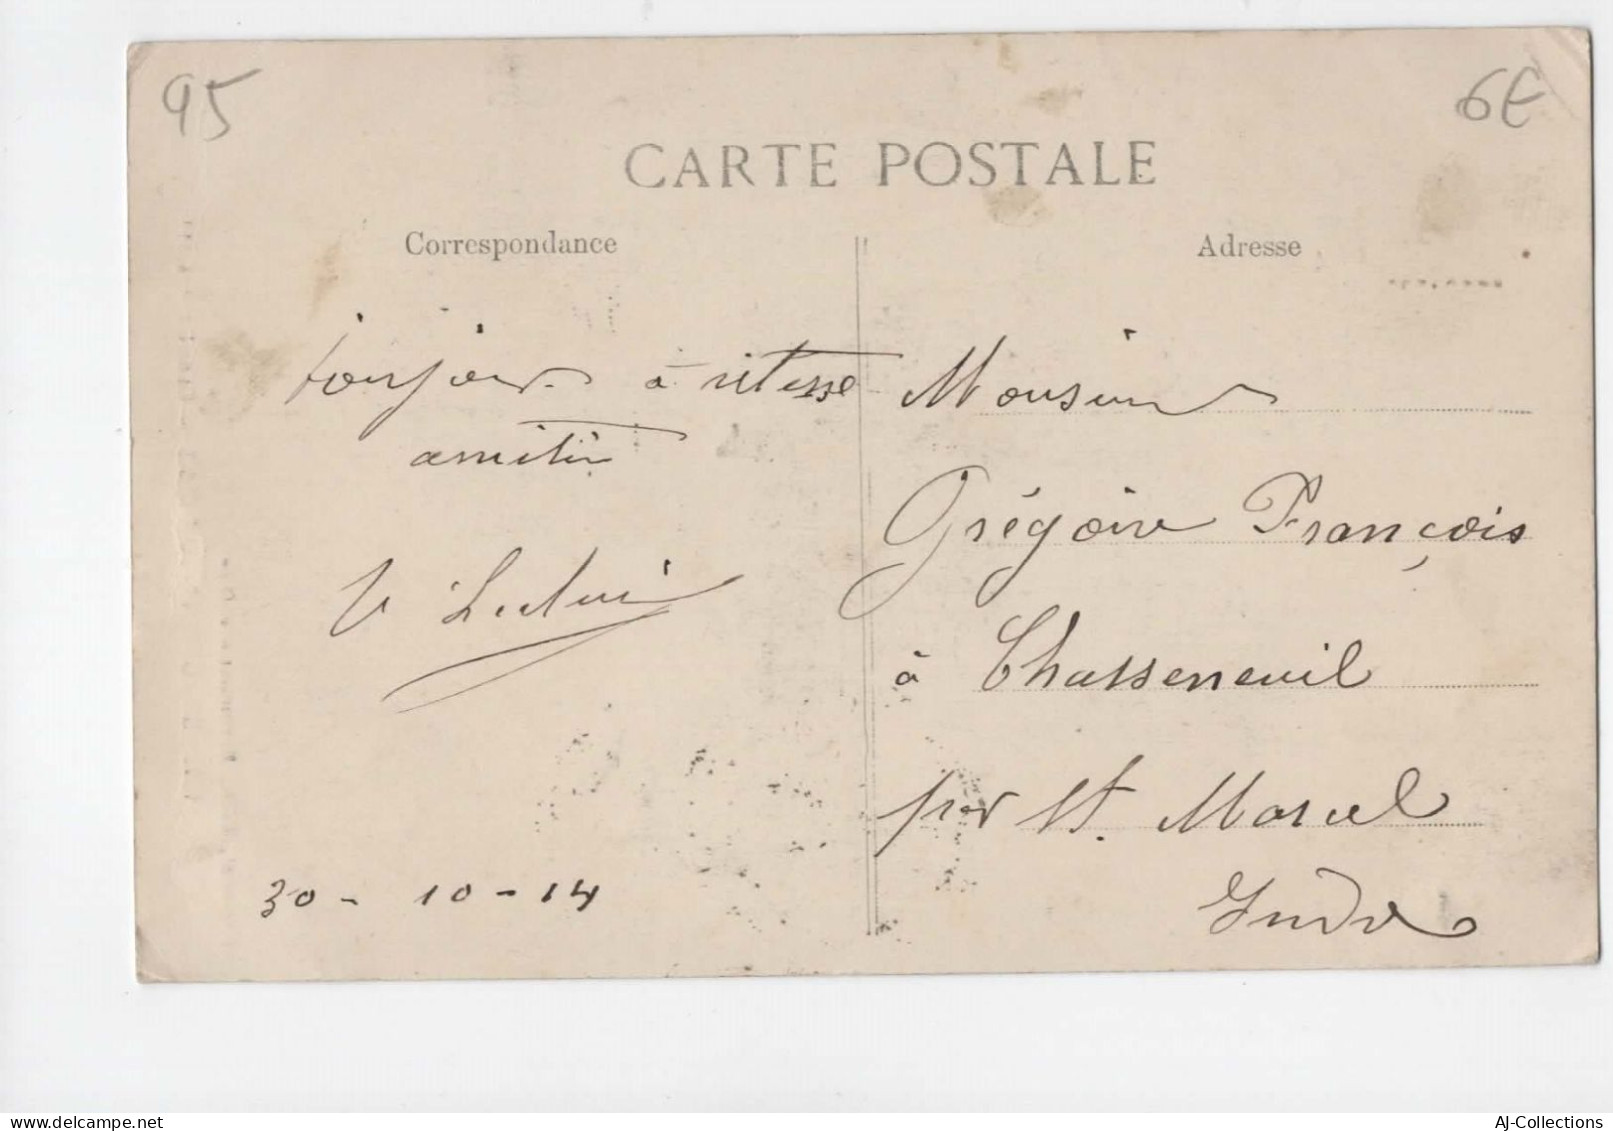 95
6€
CARTE POSTALE
Correspondance
Adresse
toujours à vitesse
amitié
30 - 10 - 14
Monsieur
Grégoire François
à Chasseneuil
par St. Marcel
Indre
AJ-Collections